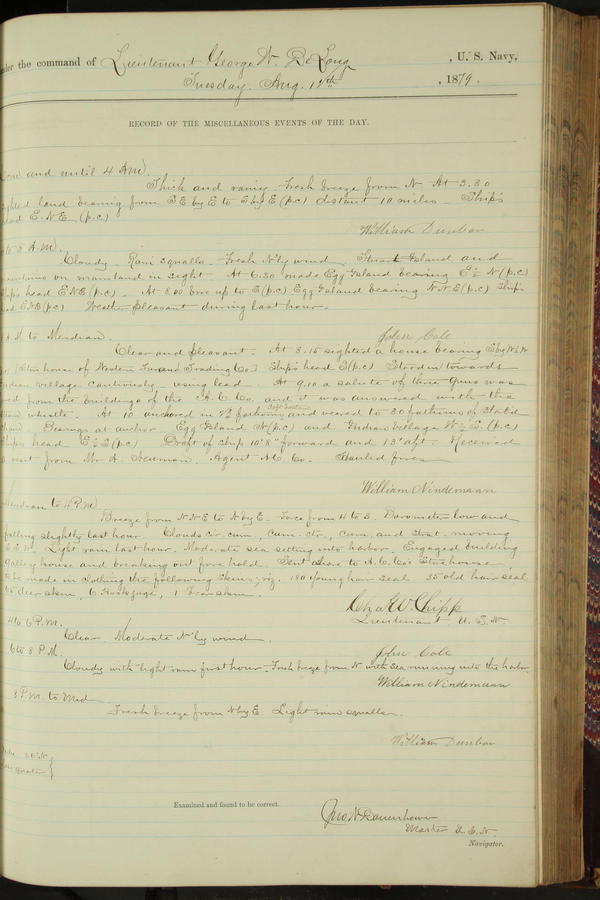 under the command of Lieutenant George W. De Long, U. S. Navy,
Tuesday, Aug. 19th, 1879.
RECORD OF THE MISCELLANEOUS EVENTS OF THE DAY.
and until 4 A.M.
Thick and rainy. Fresh breeze from N. At 3.30
sighted land bearing from S E by E to E (p.c) distant 10 miles. Ship's
head E.N.E. (p.c)
William Dunbar
to 8 A.M.
Cloudy. Rain squalls. Fresh N'ly wind. Stuart Island and
mountains on mainland in sight. At 6.30 made Egg Island bearing E ½ N (p.c)
Ship's head ENE (p.c). At 8.00 bore up to E (p.c) Egg Island bearing N N E (p.c) Ship's
head ENE (p.c) Weather pleasant during last hour.
A M to Meridian. John Cole
Clear and pleasant. At 8.15 sighted a house bearing
house of Western Fur and Trading Co.] Ship's head E (p.c) Stood in towards
Indian village cautiously, using lead. At 9.10 a salute of three guns was
from the buildings of the A. C. Co. and it was answered with the
steam whistle. At 10 anchored in fathoms and veered to 30 fathoms of Starb'd
chain. Bearings at anchor. Egg Island N (p.c) and Indian Village W ½ S. (p.c)
Ship's head E ½ S (p.c) Draft of ship 10' 8" forward and 13' aft. Received
a visit from Mr. H. Neuman, Agent A.C. Co. Hauled fires
William Nindemann
Meridian to 4 P.M.
Breeze from N N E to N by E. Force from 4 to 3. Barometer low and
falling slightly last hour. Clouds cir. cum., cum. str., cum. and strat. moving
Light rain last hour. Moderate sea setting into harbor. Engaged building
galley house and breaking out fore hold. Sent ashore to A. C. Co's Storehouse,
to be made in clothing the following skins, viz. 180 young hair seal. 35 old hair seal
deer skin, 6 1 bear skin.
Chas. W. Chipp
Lieutenant U. S. N.
4 to 6 P.M.
Clear. Moderate N'ly wind.
6 to 8 P.M. John Cole
Cloudy with light rain first hour. Fresh breeze from N. with sea running into the harbor.
William Nindemann
8 P.M. to Mid
Fresh breeze from N by E. Light rain squalls.
William Dunbar
Examined and found to be correct.
Jno. W. Danenhower
Master U. S. N.
Navigator.